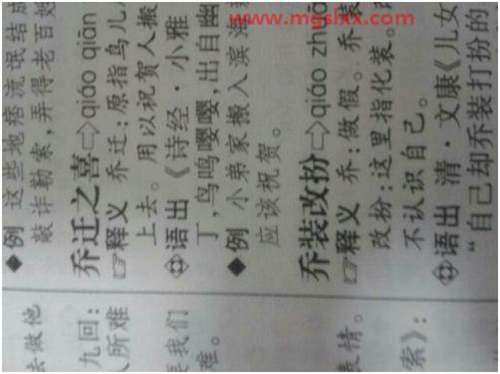 www.mgslxx.com
◆例 这些地痞流氓结成
敲诈勒索，弄得老百姓
乔迁之喜⇨qiáo qiān
☞释义 乔迁：原指鸟儿
上去。用以祝贺人搬
语出《诗经·小雅
丁，鸟鸣嘤嘤，出自幽
◆例 小弟家搬入滨
应该祝贺。
乔装改扮⇨qiáo zhu
☞释义 乔：做假。乔装
改扮：这里指化装。
不认识自己。
语出 清·文康《儿女
“自己却乔装打扮的
去做他
九回：
人所难
要我们
难。
表情。
索》：